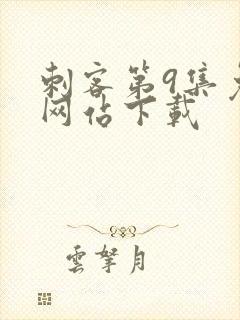 刺客第9集免
网站下载
雲拏月